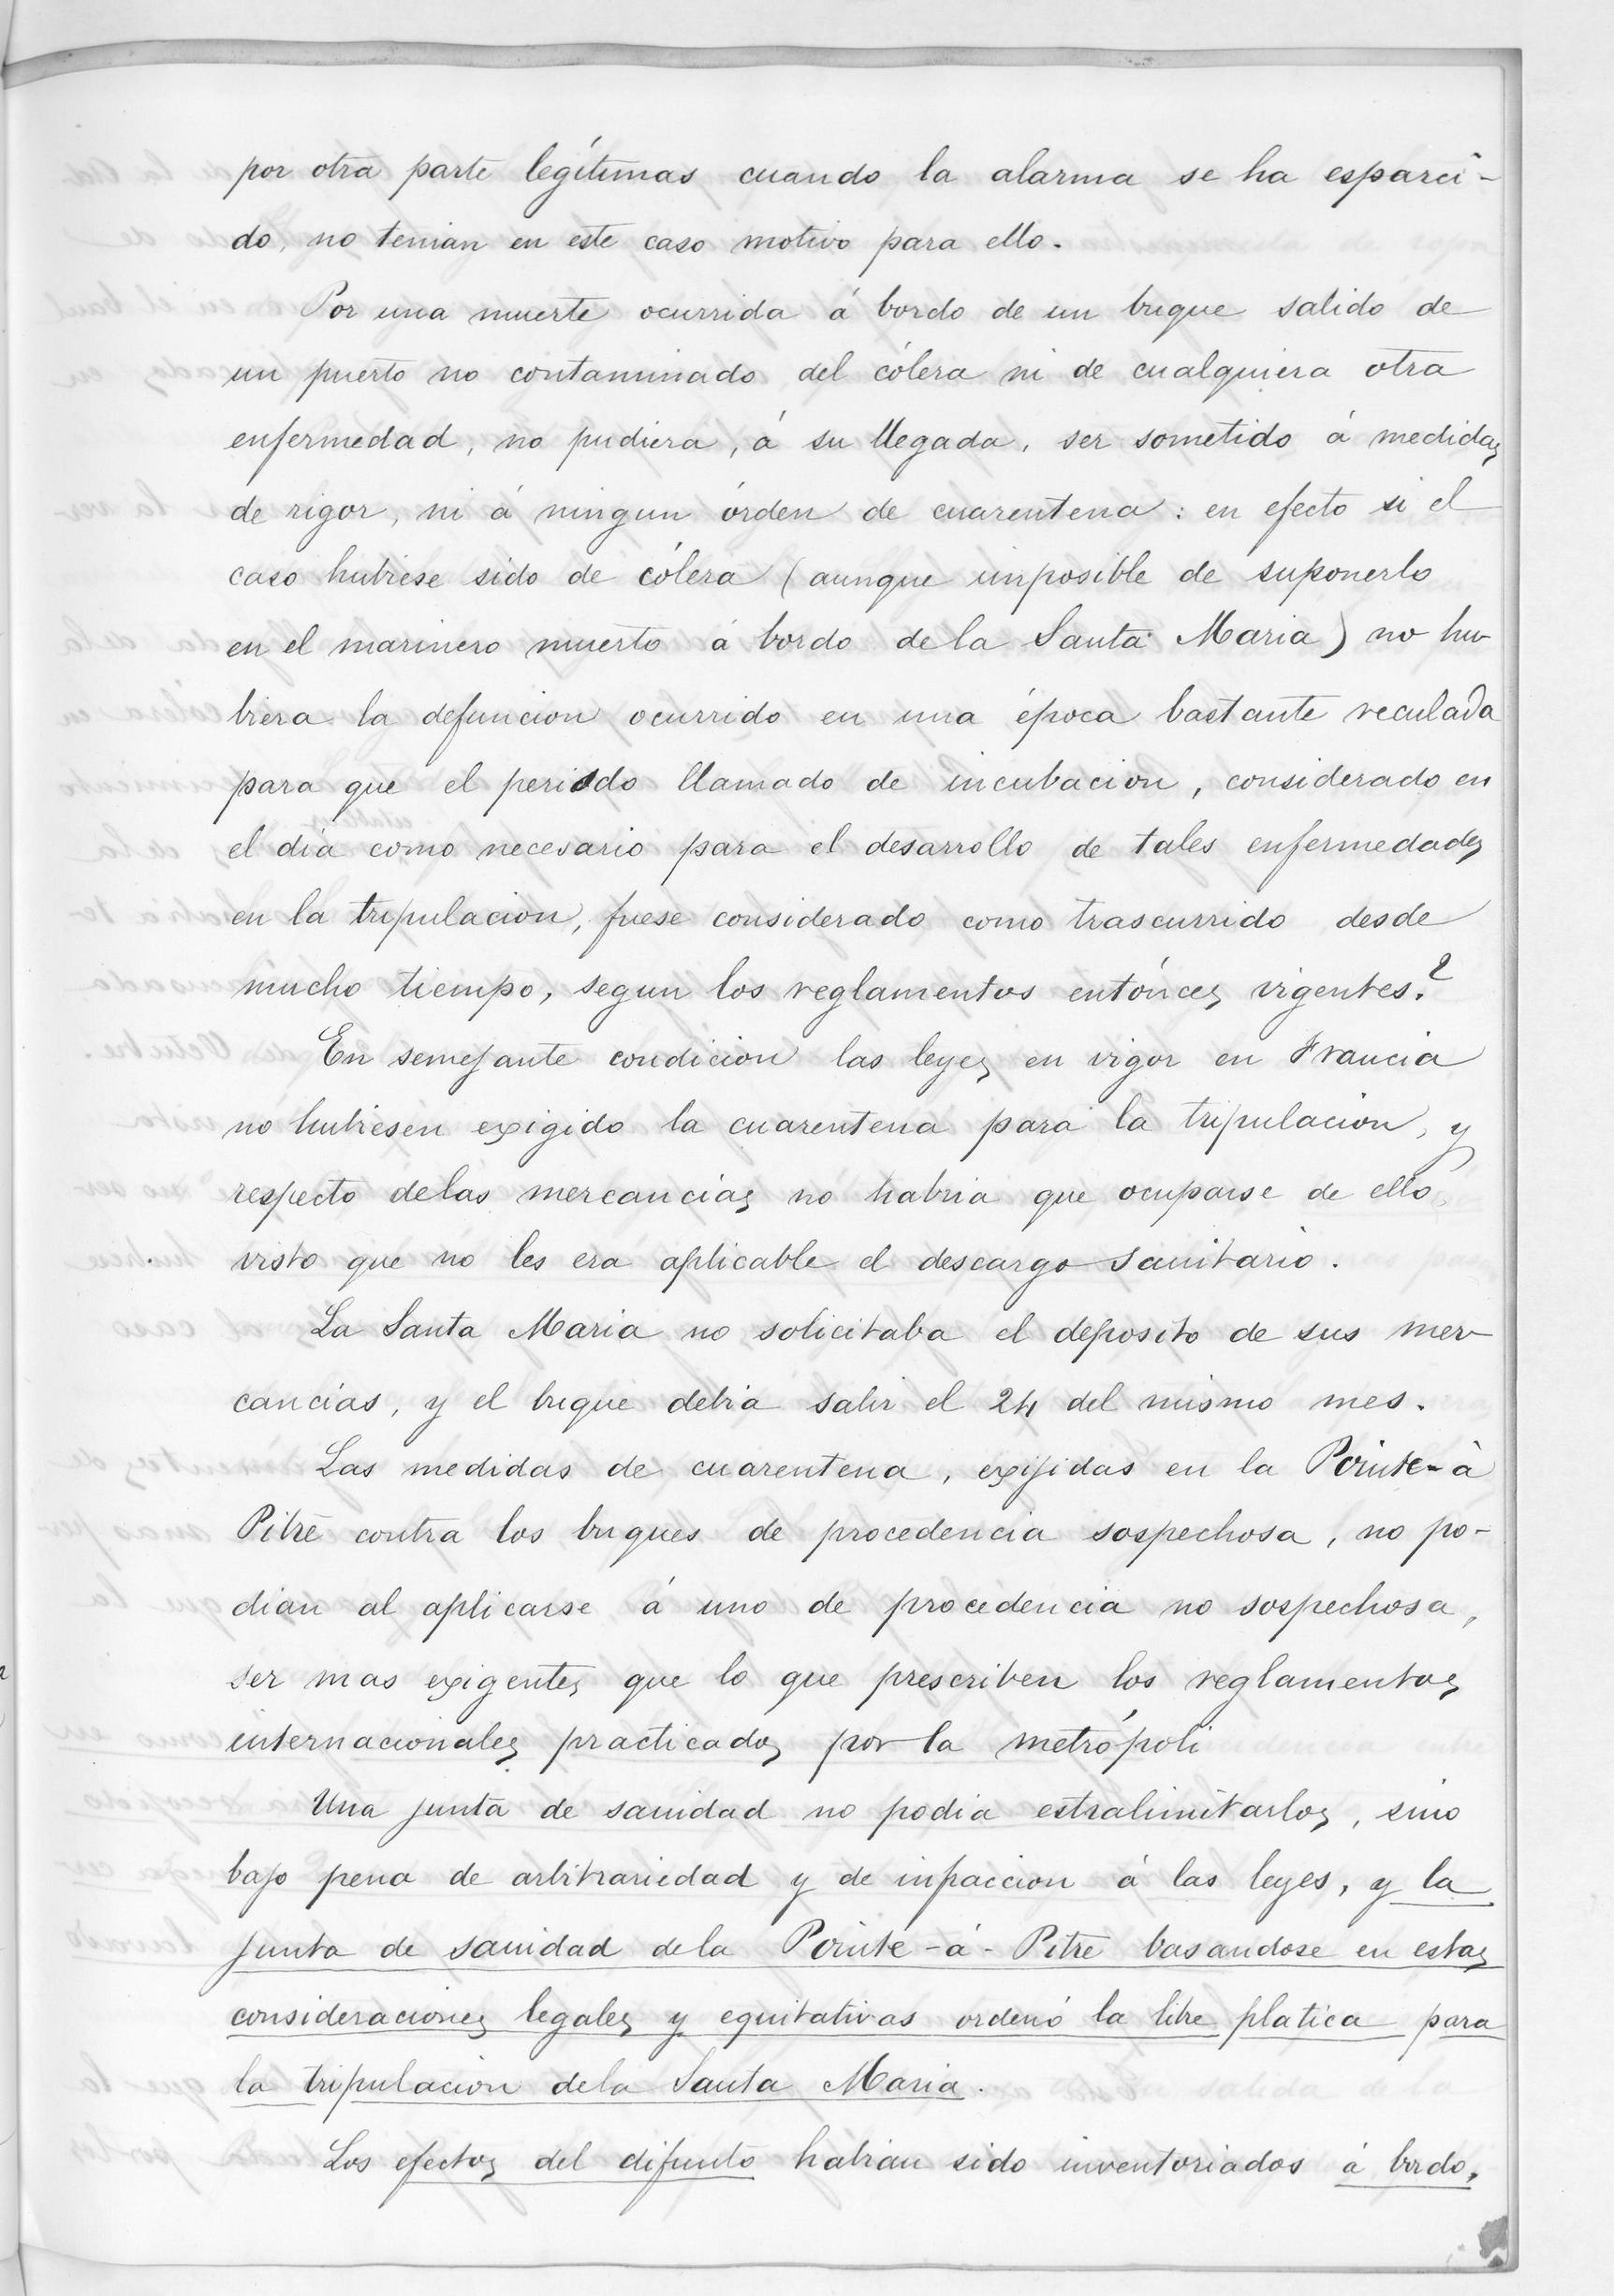 por otra parte legítimas cuando la alarma se ha esparci-
do, no tenian en este caso motivo para ello.
Por una muerte ocurrida á bordo de un buque salido de
un puerto no contaminado del cólera ni de cualquiera otra
enfermedad, no pudiera, á su llegada, ser sometido á medidas
de rigor, ni á ningun órden de cuarentena: en efecto si el
caso hubiese sido de cólera (aunque imposible de suponerlo
en el marinero muerto á bordo de la Santa Maria) no hu-
biera la defuncion ocurrido en una época bastante reculada
para que el periodo llamado de incubacion, considerado en
el dia como necesario para el desarrollo de tales enfermedades
en la tripulacion, fuese considerado como trascurrido desde
mucho tiempo, segun los reglamentos entónces vigentes?
En semejante condicion las leyes en vigor en Francia
no hubiesen exigido la cuarentena para la tripulacion, y
respecto de las mercancias no habria que ocuparse de ello,
visto que no les era aplicable el descargo sanitario.
La Santa Maria no solicitaba el deposito de sus mer-
cancias, y el buque debia salir el 24 del mismo mes.
Las medidas de cuarentena, exijidas en la Pointe-à
Pitre contra los buques de procedencia sospechosa, no po-
dian al aplicarse á uno de procedencia no sospechosa,
ser mas exigentes que lo que prescriben los reglamentos
internacionales practicados por la metrópoli
Una junta de sanidad no podia estralimitarlos, sino
bajo pena de arbitrariedad y de infraccion á las leyes, y la
junta de sanidad de la Pointe-á-Pitre basandose en estas
consideraciones legales y equitativas ordenó la libre platica para
la tripulacion de la Santa Maria.
Los efectos del difunto habian sido inventoriados á bordo,